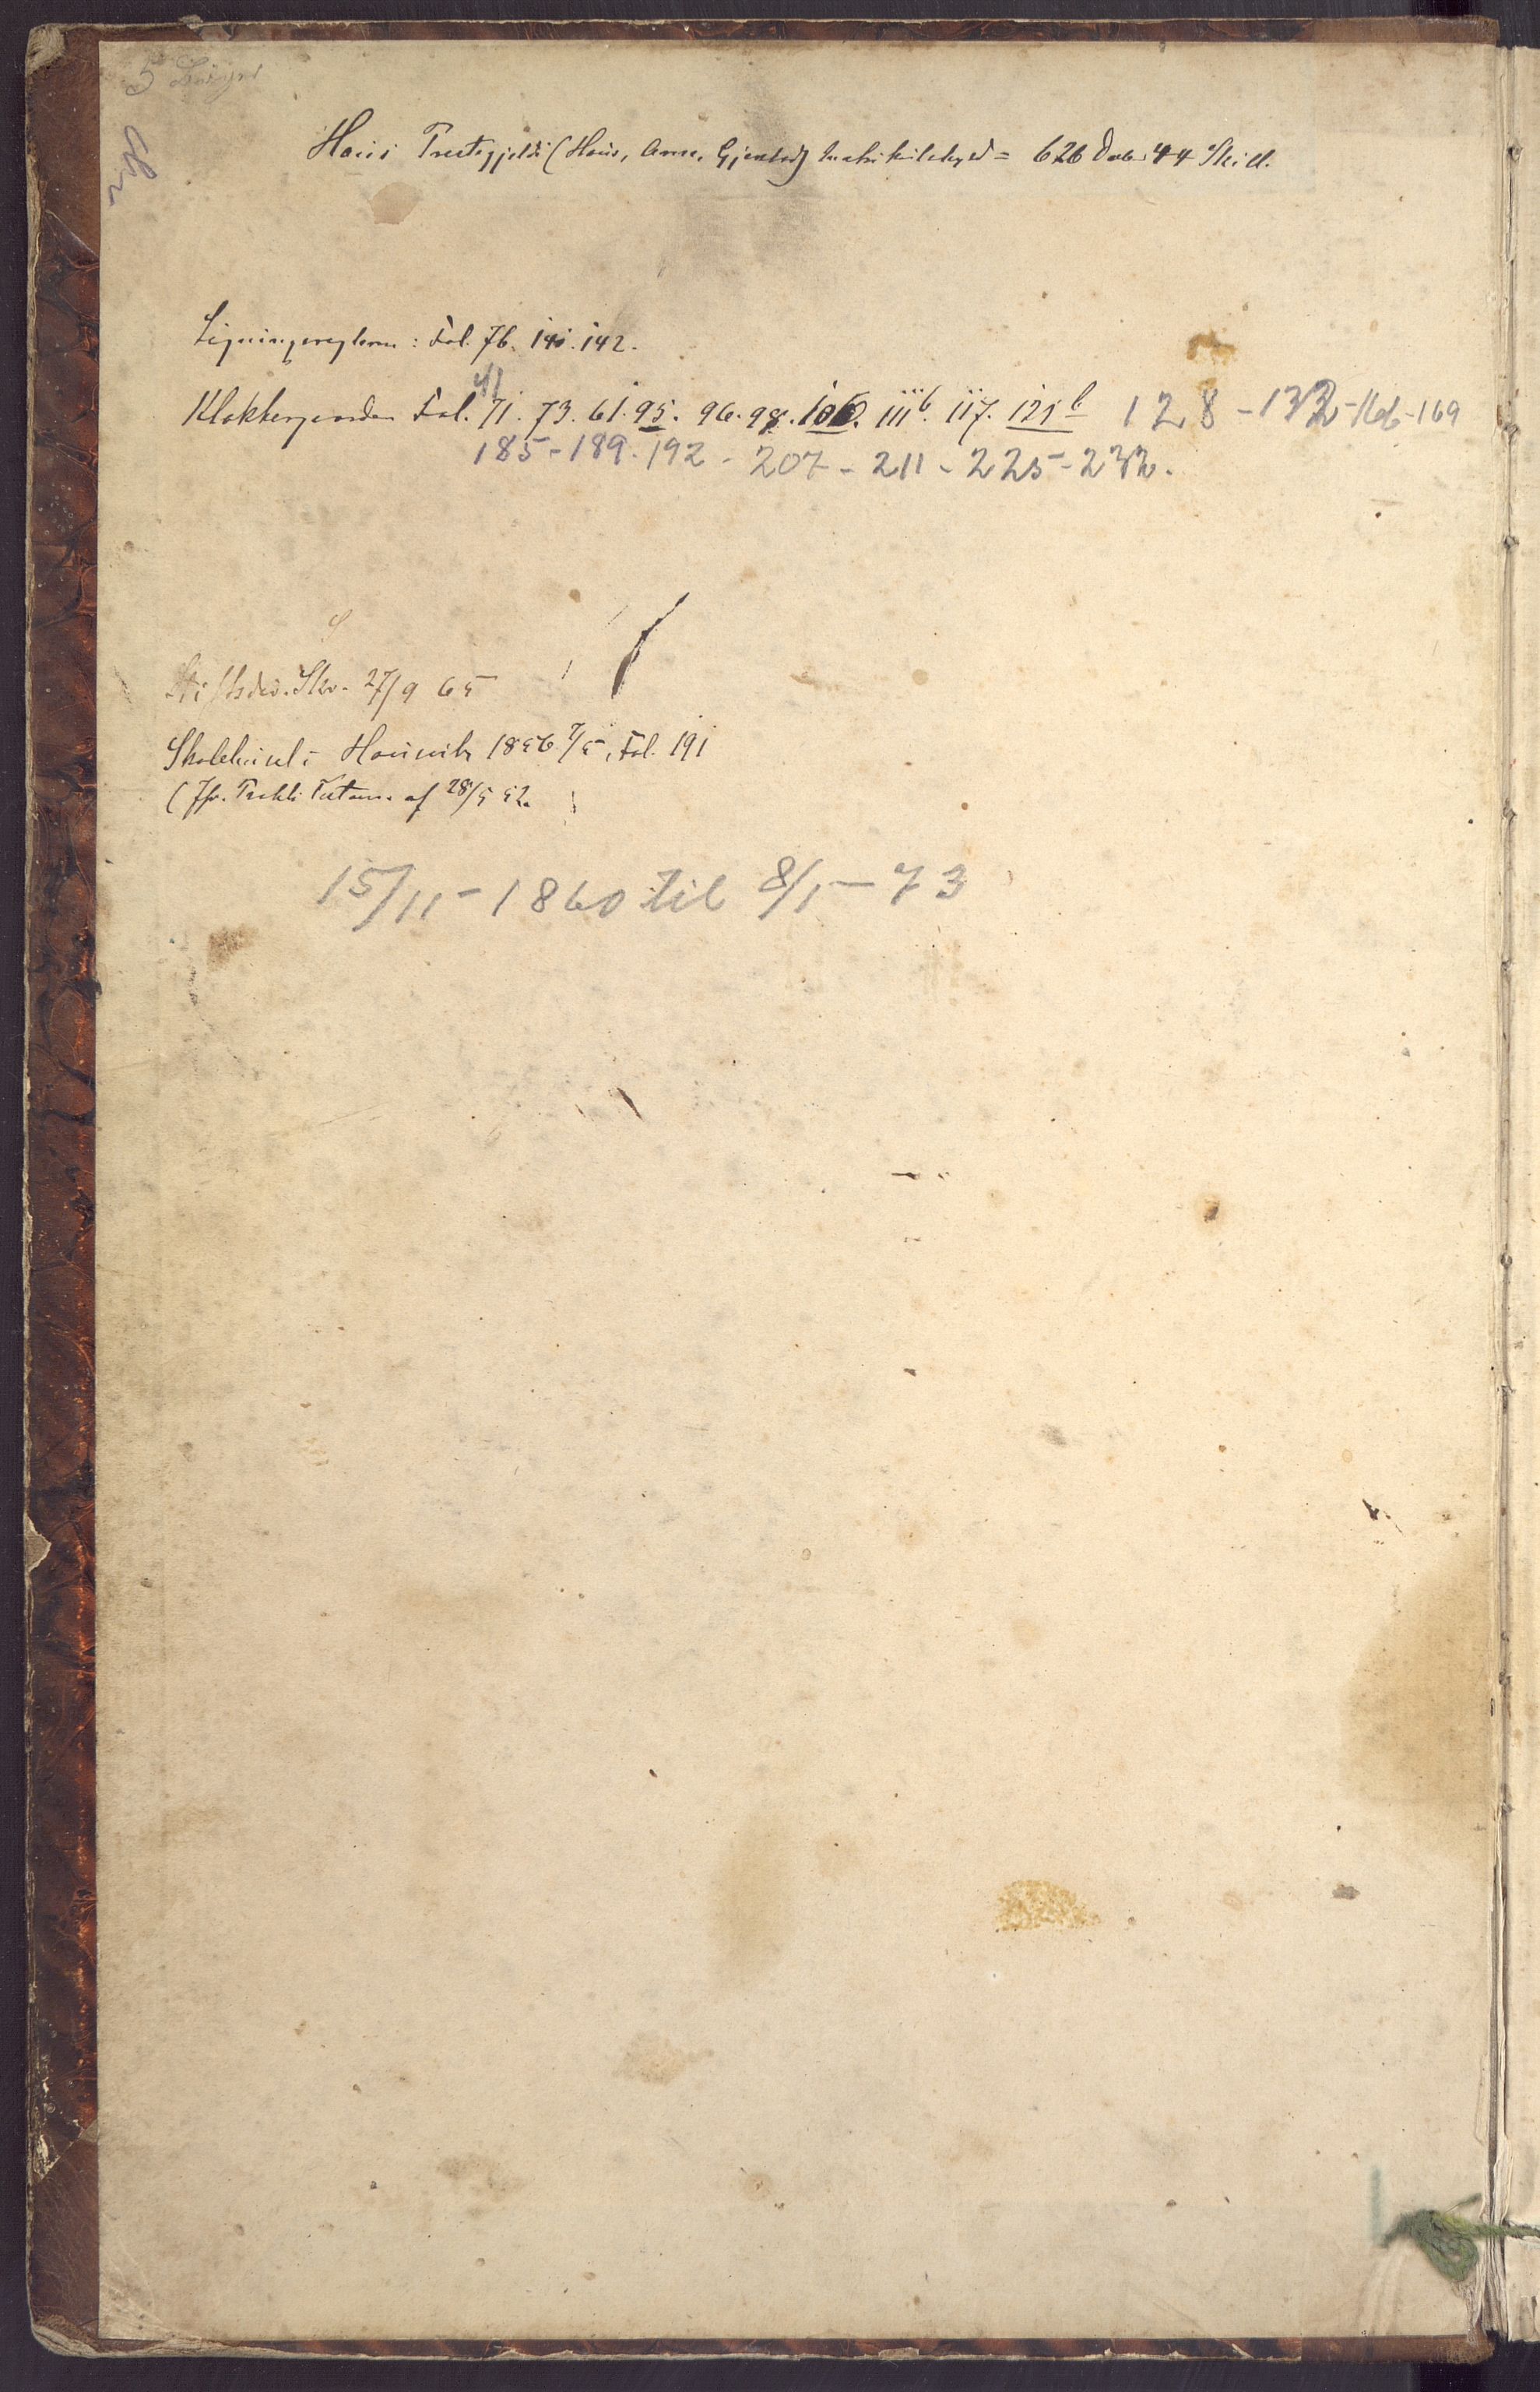 5
Haus Præstegjeld (Haus, Arne, Gjerstad) Matrikulskyld = 626 Daler 44 Skill.
Ligningsreglerne: Fol. 76. 140. 142.
41
Klokkergaarden Fol. 71. 73. 61. 95. 96. 98. 106. 111b. 117. 121b 128-132-166-169
185-189-192-207-211-225-232.
Stiftsdir. Skr. 27/9 65
Skolehuset i Hausvik 1856 7/5, Fol. 191
(Jfr. af 28/5 52.
15/11-1860 til 8/1-73